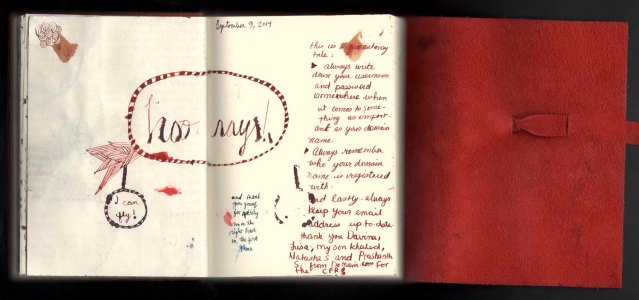 September 9, 2014
hoo rays!
I can
fly!
and thank
you young
for getting
me on the
right track
in the first
place
this is a cautionary
tale:
▶ always write
down your username
and password
somewhere when
it comes to some-
thing as import-
ant as your domain
name.
▶ Always remember
who your domain
name is registered
with.
And lastly - always
keep your email
address up to date
thank you Davina,
Luisa, my son Khaled,
Natasha S and Prashanth
S. from Domain.com for
the CPR